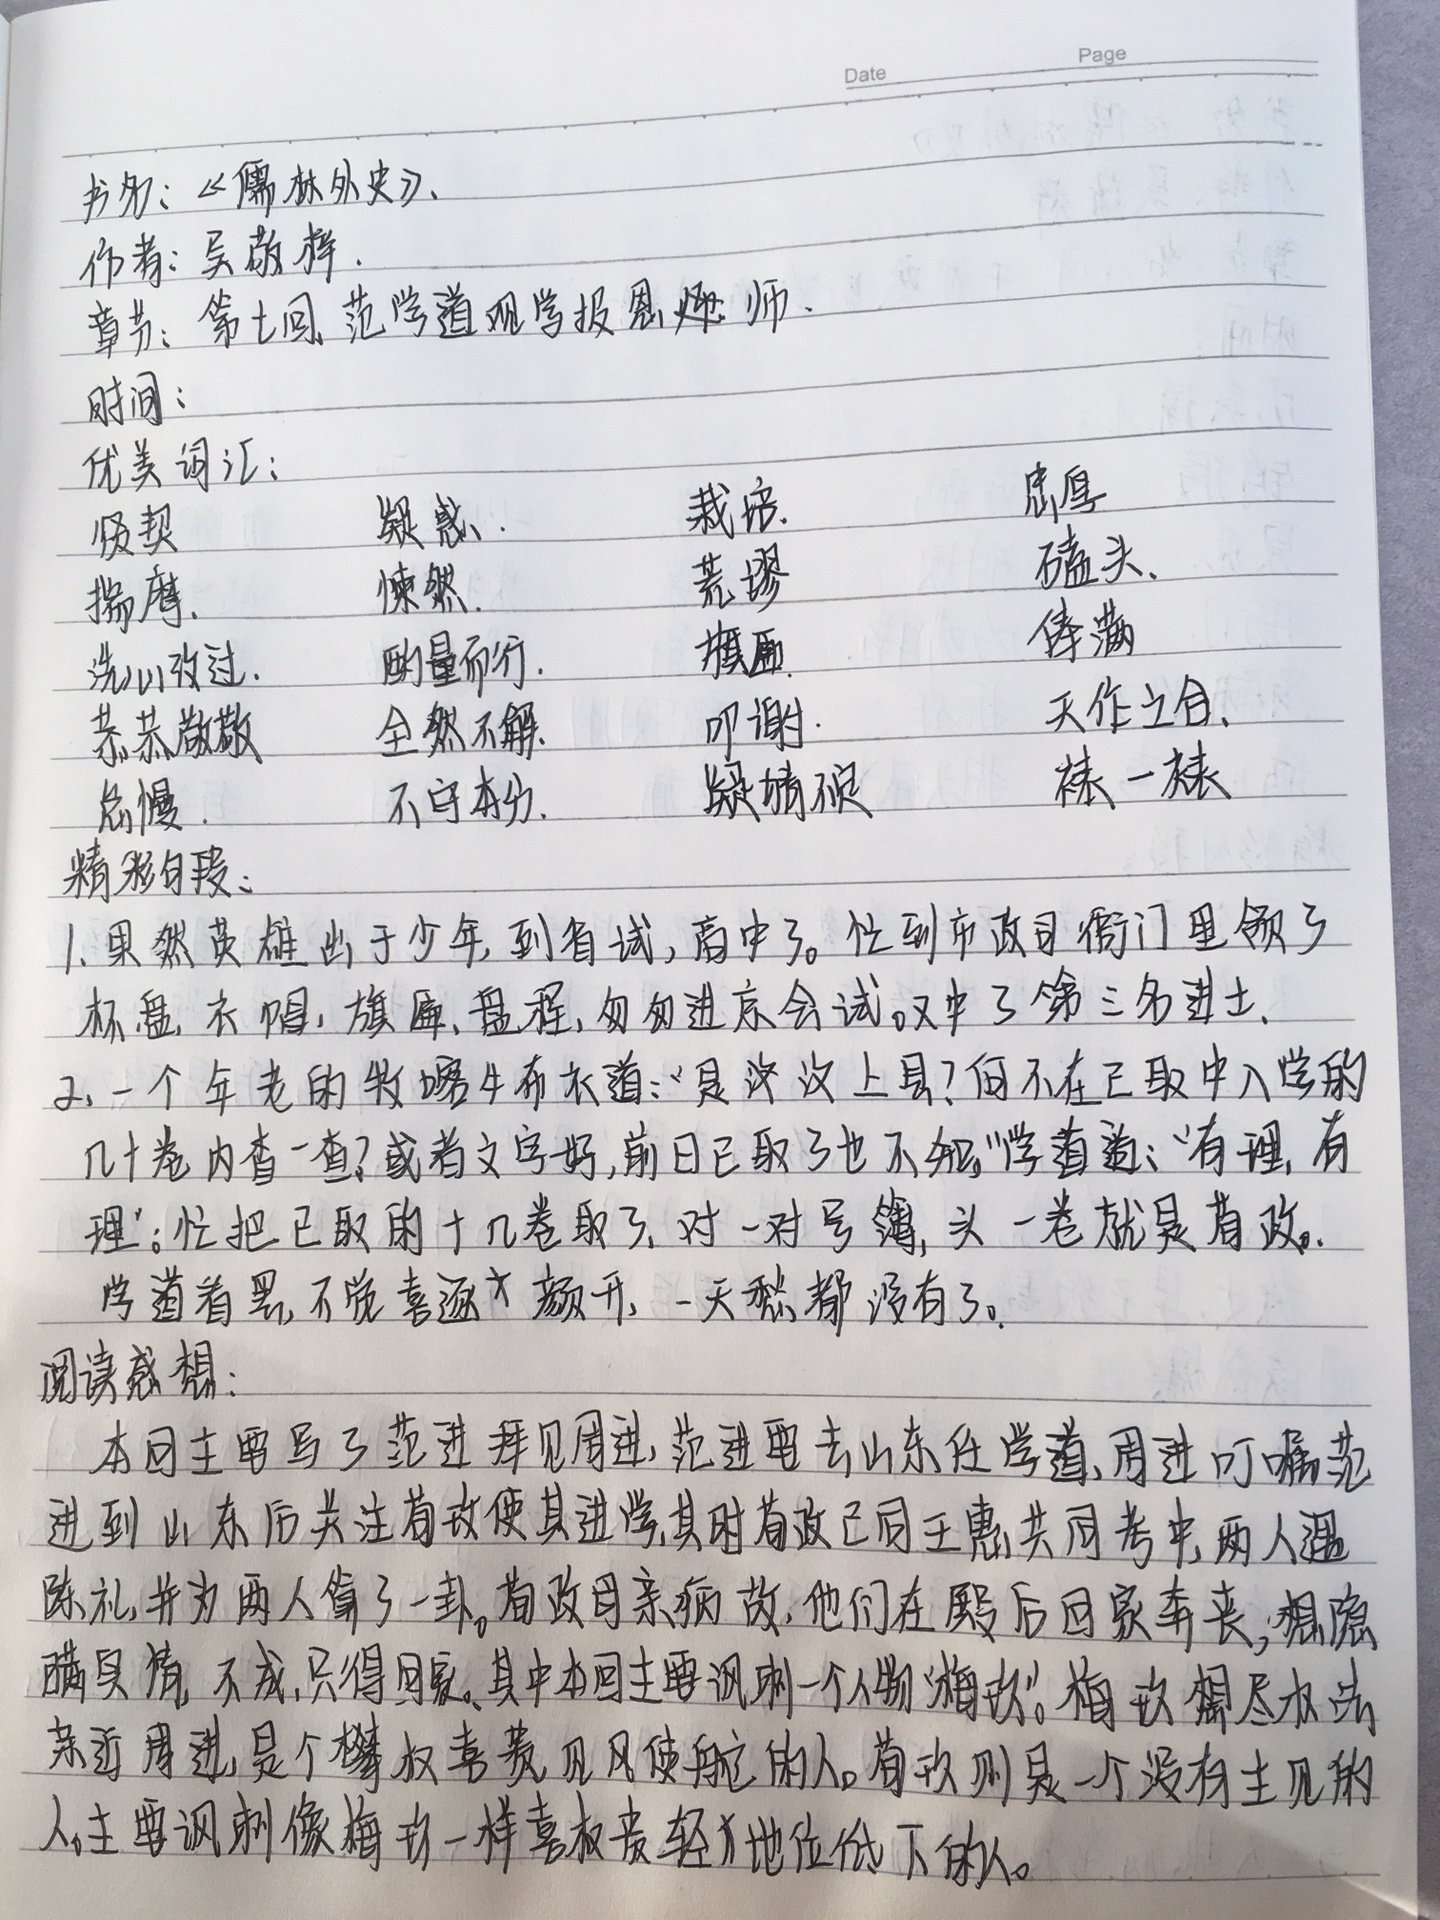 Date Page
书名：《儒林外史》、
作者：吴敬梓.
章节：第七回、范学道观学报恩师.
时间：
优美词汇：
疑惑、. 栽培. 忠厚
揣摩. 悚然. 荒谬 磕头、
洗心改过. 酌量而行. 旗匾. 俸满
恭恭敬敬 全然不解. 叩谢. 天作之合、
怠慢. 不守本分. 疑猜不定 裱一裱
精彩句段：
1、果然英雄出于少年，到省试，高中了。忙到布政司衙门里领了
杯、盘、衣帽、旗匾、盘程，匆匆进京会试。又中了第三名进士、
2、一个年老的幕客牛布衣道：“是汶上县？何不在已取中入学的
几十卷内查一查？或者文字好，前日已取了也不知。”学道道：“有理，有
理”；忙把已取的十几卷取了、对一对号簿，头一卷就是荀玫。
学道看罢，不觉喜逐颜开，一天愁都没有了。
阅读感想：
本回主要写了范进拜见周进，范进要去山东任学道、周进叮嘱范
进到山东后关注荀玫使其进学，其时荀玫已同王惠共同考中，两人遇
陈礼，并为两人算了一卦。荀玫母亲病故，他们在殿后回家奔丧，想隐
瞒实情，不成，只得回家。其中本回主要讽刺一个人物“梅玖”。梅玖想尽办法
亲近周进，是个攀权喜贵见风使舵的人。荀玫则是一个没有主见的
人。主要讽刺像梅玖一样喜权贵轻地位低下的人。